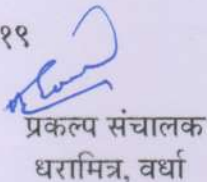 १९
प्रकल्प संचालक
धरामित्र, वर्धा